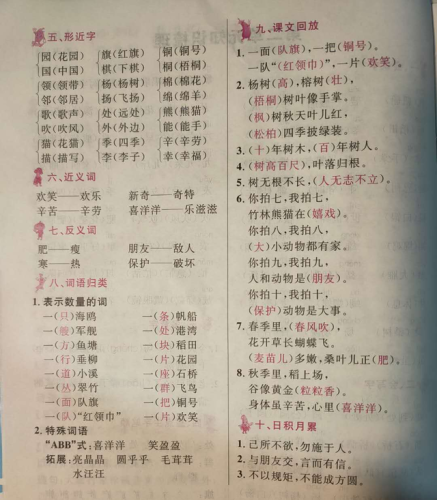 五、形近字
园(花园) 旗(红旗) 铜(铜号)
国(中国) 棋(下棋) 桐(梧桐)
领(领带) 杨(杨树) 棉(棉花)
邻(邻居) 扬(飞扬) 绵(绵羊)
歌(歌声) 处(远处) 熊(熊猫)
吹(吹风) 外(外边) 能(能手)
猫(花猫) 季(四季) 辛(辛劳)
描(描写) 李(李子) 幸(幸福)
六、近义词
欢笑——欢乐 新奇——奇特
辛苦——辛劳 喜洋洋——乐滋滋
七、反义词
肥——瘦 朋友——敌人
寒——热 保护——破坏
八、词语归类
1.表示数量的词
一(只)海鸥 一(条)帆船
一(艘)军舰 一(处)港湾
一(方)鱼塘 一(块)稻田
一(行)垂柳 一(片)花园
一(道)小溪 一(座)石桥
一(丛)翠竹 一(群)飞鸟
一(面)队旗 一(把)铜号
一(队)“红领巾” 一(片)欢笑
2.特殊词语
“ABB”式:喜洋洋 笑盈盈
拓展:亮晶晶 圆乎乎 毛茸茸
水汪汪
九、课文回放
1.一面(队旗),一把(铜号)。
一队“(红领巾)”,一片(欢笑)。
2.杨树(高),榕树(壮),
(梧桐)树叶像手掌。
(枫)树秋天叶儿红,
(松柏)四季披绿装。
3.(十)年树木,(百)年树人。
4.(树高百尺),叶落归根。
5.树无根不长,(人无志不立)。
6.你拍一,我拍七,
竹林熊猫在(嬉戏)。
你拍八,我拍八,
(大)小动物都有家。
你拍九,我拍九,
人和动物是(朋友)。
你拍十,我拍十,
(保护)动物是大事。
7.春季里,(春风吹),
花开草长蝴蝶飞。
(麦苗儿)多嫩,桑叶儿正(肥)。
8.秋季里,稻上场,
谷像黄金(粒粒香)。
身体虽辛苦,心里(喜洋洋)。
十、日积月累
1.己所不欲,勿施于人。
2.与朋友交,言而有信。
3.不以规矩,不能成方圆。